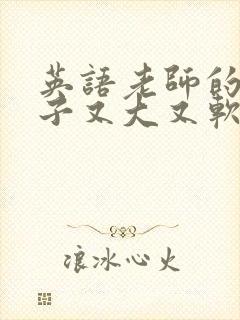 英語老師的
子又大又軟
浪冰心火